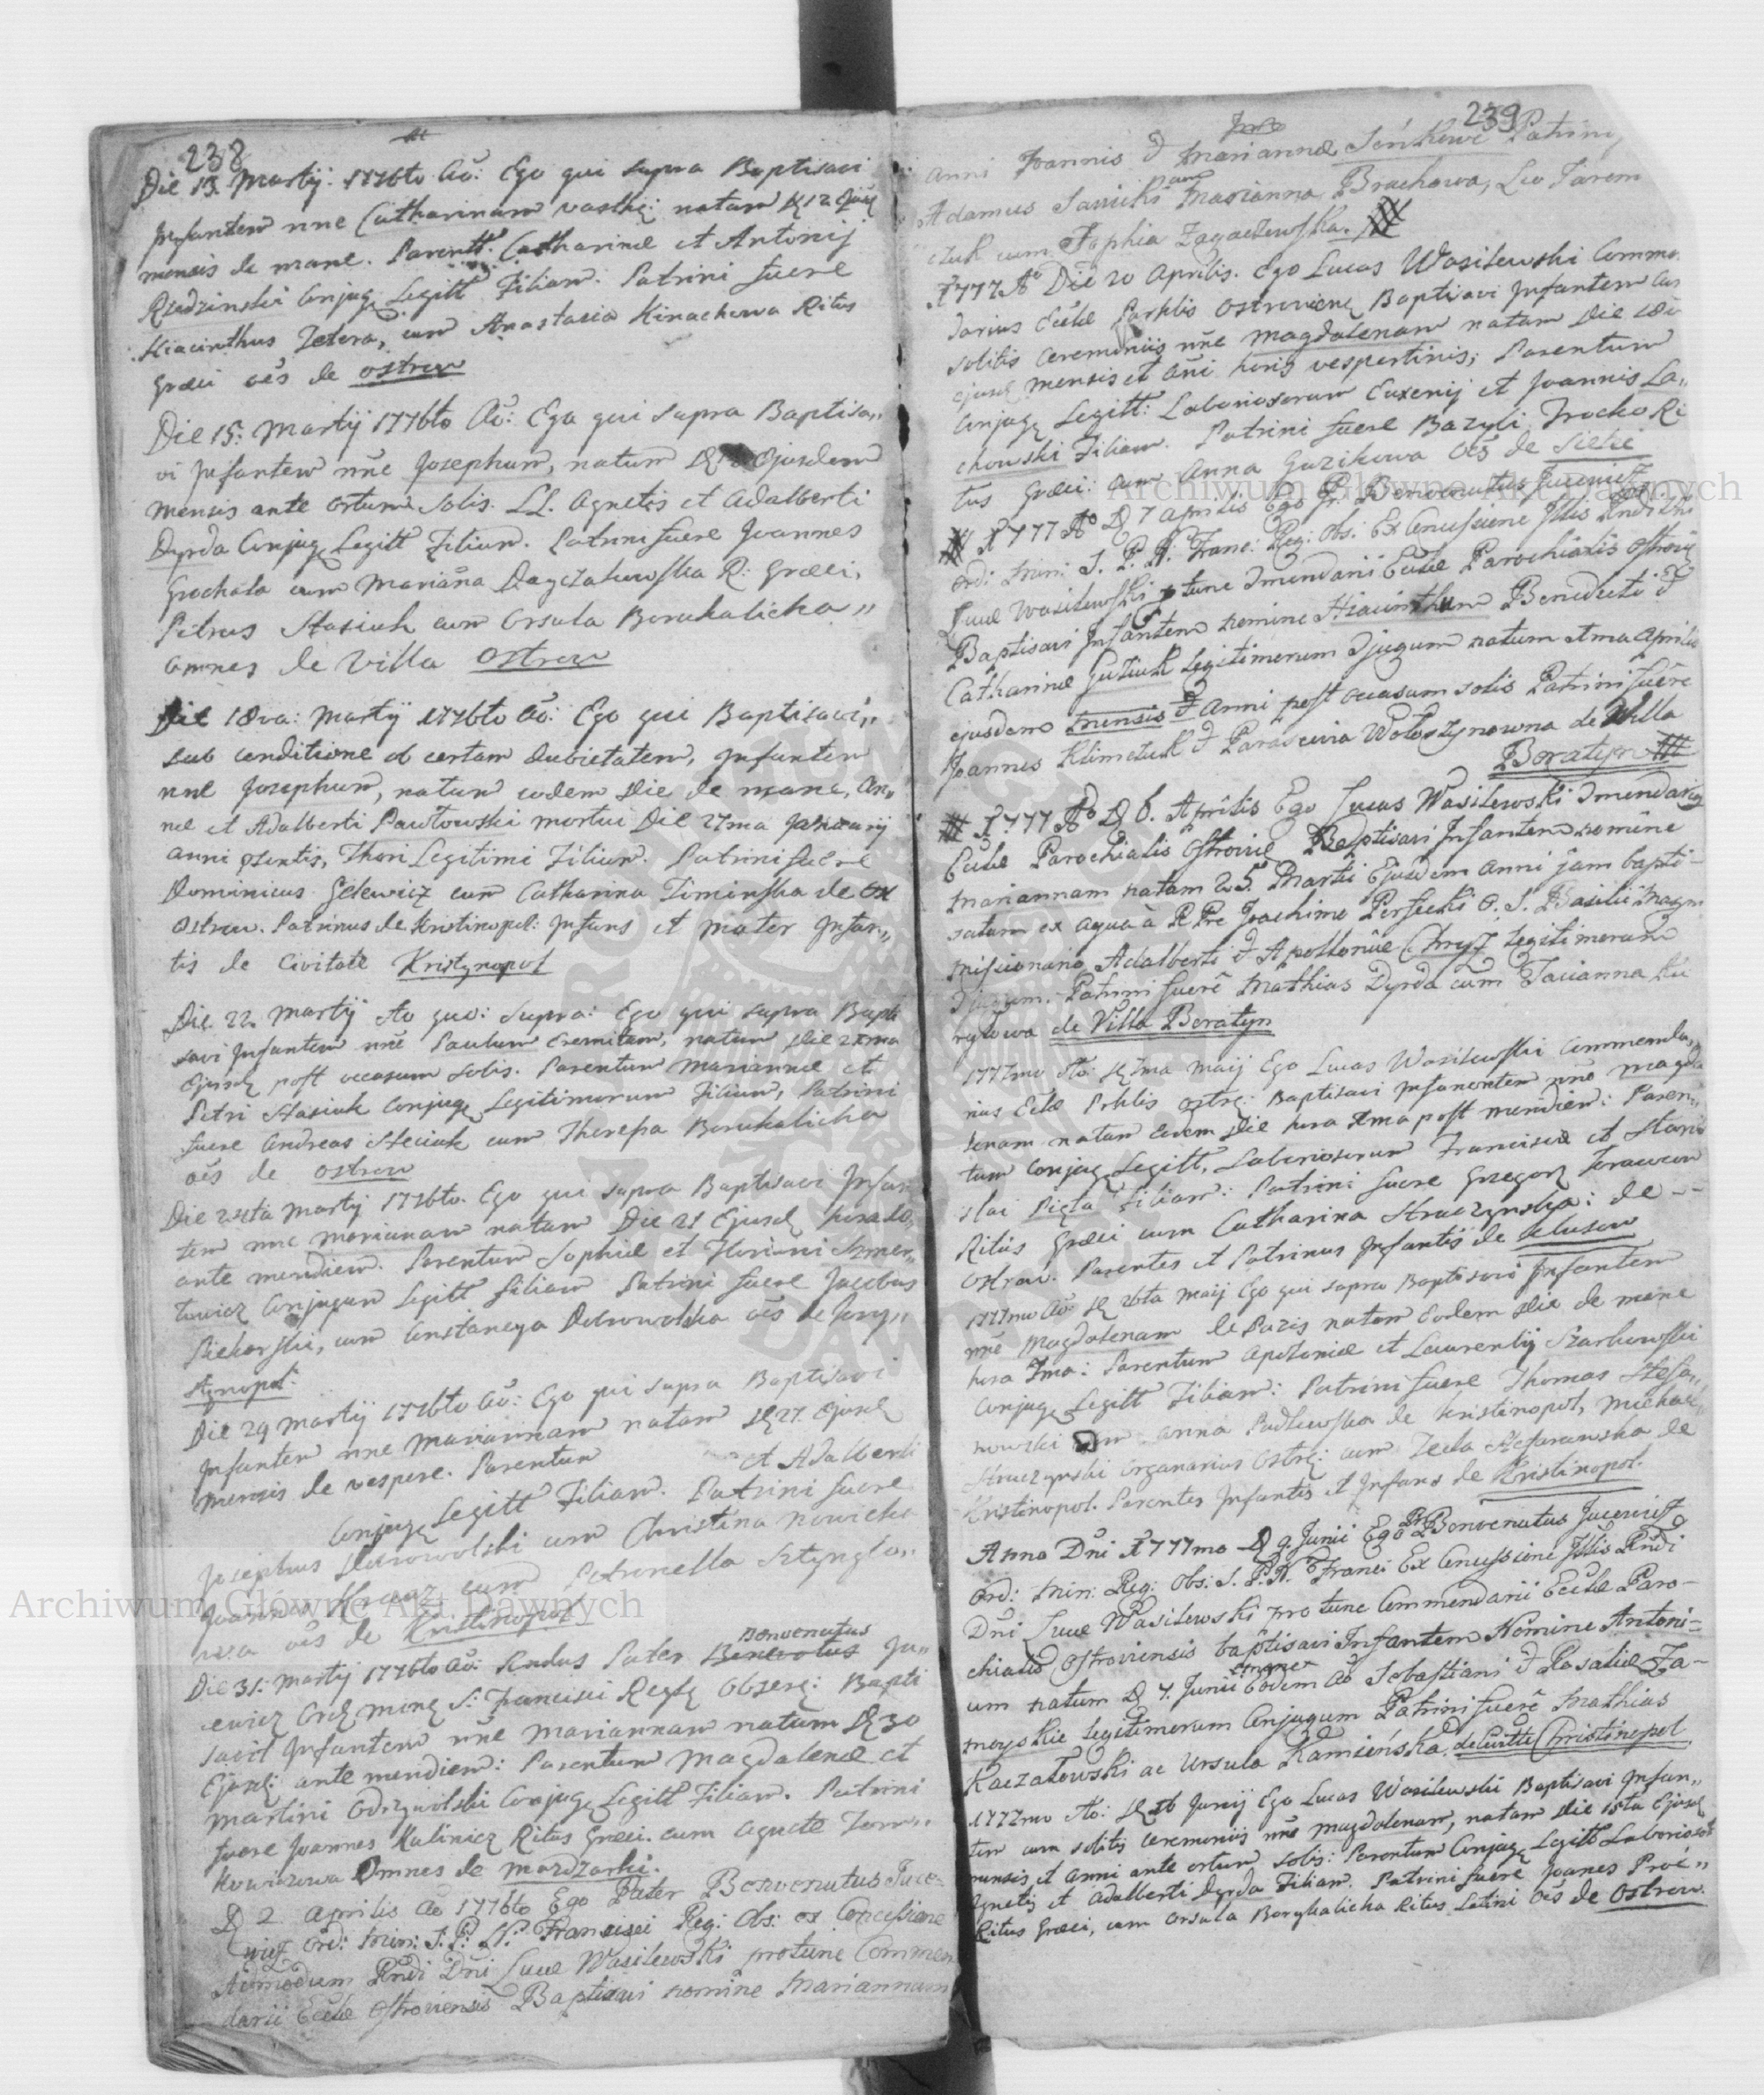 238
Die 13. Martij. 1776to Ao: Ego qui supra Baptisavi
Infantem nne Catharinam natam
mensis de mane. Parentt. Catharinæ et Antonij
Rzedzinski Conjug Legitt Filiam. Patrini fuere
Hiacinthus Tetera, cum Anastasia Kinachowa Ritus
Græci oēs de Ostrow
Die 15: Martij 1776to Ao: Ego qui supra Baptisa„
vi Infantem nne Josephum, natum Ejusdem
mensis ante ortum solis. LL. Agnetis et Adalberti
Dyrda Conjug Legitt Filium. Patrini fuere Joannes
Grochala cum Mariāna Dayczakowska R: Græci,
Petrus Stasiuk cum Orsula Borukalicha„
Omnes de Villa Ostrow
Die 18va: Martij 1776to Ao: Ego qui Baptisavi„
sub conditione ob certam dubietatem, Infantem
nne Josephum, natum eodem Die de mane, An„
næ et Adalberti Pawłowski mortui Die 27ma Januarij
anni pntis, Thori Legitimi Filium. Patrini fuere
Dominicus Gelewicz cum Catharina Timinska de
Ostrow. Patrinus de Kristinopol: Infans et Mater Infan„
tis de Civitate Kristynopol
Die 22. Martij Ao quo: supra: Ego qui supra Bapti
savi Infantem nne Paulum Eremitam, natum Die 21ma
Ejusd post occasum solis. Parentum Mariannæ et
Petri Stasiuk Conjug Legitimorum Filium, Patrini
fuere Andreas Steciuk cum Theressa Borukalicha
oēs de Ostrow
Die 24ta Martij 1776to. Ego qui supra Baptisavi Infan
tem nne Mariannam natam Die 21 Ejusd hora
ante meridiem. Parentum Sophiæ et Floriani Szmer„
towicz Conjugum Legitt filiam Patrini fuere Jacobus
Piekarski, cum Constancya Dobrowolska oēs de Kry„
stynopol:
Die 29 Martij 1776to Ao: Ego qui supra Baptisavi
Infantem nne Mariannam natam D 27 Ejusd
mensis de vespere. Parentum et Adalberti
Conjug Legitt Filiam. Patrini fuere
Josephus Dobrowolski cum Christina Nowicka
Joannes cum Petronella
oēs de Kristinopol
Benvenutus
Die 31: Martij 1776to Ao: Rndus Pater Ju„
cewicz Ord Mino S: Francisci Regl Observ: Bapti
savit Infantem nne Mariannam natam D 30
Ejusd: ante meridiem: Parentum Magdalenæ et
Martini Odrzywolski Conjug Legitt Filiam. Patrini
fuere Joannes Kalinicz Ritus Græci. cum Agnete Tom„
kowiczowa Omnes de Mozdzarki.
D 2 Aprilis Ao 1776to Ego Pater Benvenutus Juce-
wicz Ord: Min: S. P: N: Francisci Reg: Obs: ex Concessione
Admodum Rndi Dni Lucæ Wasilewski protunc Commen
darii Eccłæ Ostroviensis Baptisavi nomine Mariannam
239
Anni Joannis & Mariannæ Seńkowe Patrini
Adamus Sawicki cum Marianna Brachowa, Leo Jarem
czuk cum Sophia Zagaczewska.
1777 Ao Die 20 Aprilis. Ego Lucas Wasilewski Commen
darius Eccłæ Parhlis Ostrovien Baptisavi Infantem cum
solitis ceremoniis nne Magdalenam natam Die
ejusd mensis et ani horis vespertinis; Parentum
Conjug Legitt: Laboriosorum Euxenij et Joannis La„
chowski Filiam. Patrini fuere Bazyli Trocko Ri
tus Græci: cum Anna Guzikowa oēs de Sielec
1777 Ao D 7 Aprilis Ego Fr. Benvenutus Jucewicz
Ordi: Min: S. P. N. Franc: Reg: Obs. Ex Concessione Illis Rndi Dni
Lucæ Wasilewski p tunc Commendarii Eccłæ Parochialis Ostrovi
Baptisavi Infantem nomine Hiacinthum Benedicti &
Catharinæ Gutiuk Legitimorum Conjugum natum Aprilis
ejusdem mensis & Anni post occasum solis Patrini fuere
Joannes Klimczuk & Parascevia Wołoszynowna de Villa
Boratyn
1777 Ao D 6. Aprilis Ego Lucas Wasilewski Commendarius
Eccłæ Parochialis Ostrovie Baptisavi Infantem nomine
Mariannam natam 25 Martii Ejusdem anni jam bapti-
satam ex aqua à R Pre Joachimo Perfecki O. S. Basilii Magn
Missionario, Adalberti & Apolloniæ Chmyz Legitimorum
Conjugum. Patrini fuerē Mathias Dyrda cum Tacianna Ku
ryłowa de Villa Boratyn
1777mo Ao: D 7ma Maij Ego Lucas Wasilewski Commenda„
rius Eccłæ Prhlis Ostro: Baptisavi Infantem nne Magda
lenam natam eodem Die hora post meridiem: Paren„
tum Conjug Legitt, Laboriosorum Franciscæ et Stanis
slai Pięta Filiam: Patrini fuere Grzegorz
Ritus Græci cum Catharina Straczynska: de --
Ostrow. Parentes et Patrinus Infantis de Klusow
1777mo Ao D 26ta Maij Ego qui supra Baptisavi Infantem
nne Magdalenam de Pazis natam Eodem Die de mane
hora 7ma: Parentum Apoloniæ et Laurentij Szarkowski
Conjug Legitt Filiam: Patrini fuere Thomas Stefa„
nowski cum Anna Padlewska de Kristinopol, Michael
Straczynski Organarius Ostro: cum Tecla Stefanowska de
Kristinopol. Parentes Infantis et Infans de Kristinopol.
Anno Dni 1777mo D 9. Junii Ego Pr Benvenutus Jucewicz
Ord: Min: Reg: Obs: S. P. N. Franci Ex Concessione Illis Rndi
Dni Lucæ Wasilewski pro tunc Commendarii Eccłæ Paro-
chialis Ostroviensis baptisavi Infantem Nomine Antoni-
um natum D 7. Junii Eodem Ao Sebastiani & Rosaliæ Za-
moyskie legitimorum Conjugum Patrini fuerē Mathias
Kaczałowski ac Ursula Kamieńska. de Civitte Christinopol
1777mo Ao: D 16 Junij Ego Lucas Wasilewski Baptisavi Infan„
tem cum solitis ceremoniis nne Magdalenam, natam Die 15ta Ejusd
mensis et Anni ante ortum solis: Parentum Conjug Legitt Laboriosor
Agnetis et Adalberti Dyrda Filiam. Patrini fuere Joanes Proć„
Ritus Græci, cum Orsula Borykalicha Ritus Latini oēs de Ostrow.
Archiwum Główne Akt Dawnych
Archiwum Główne Akt Dawnych